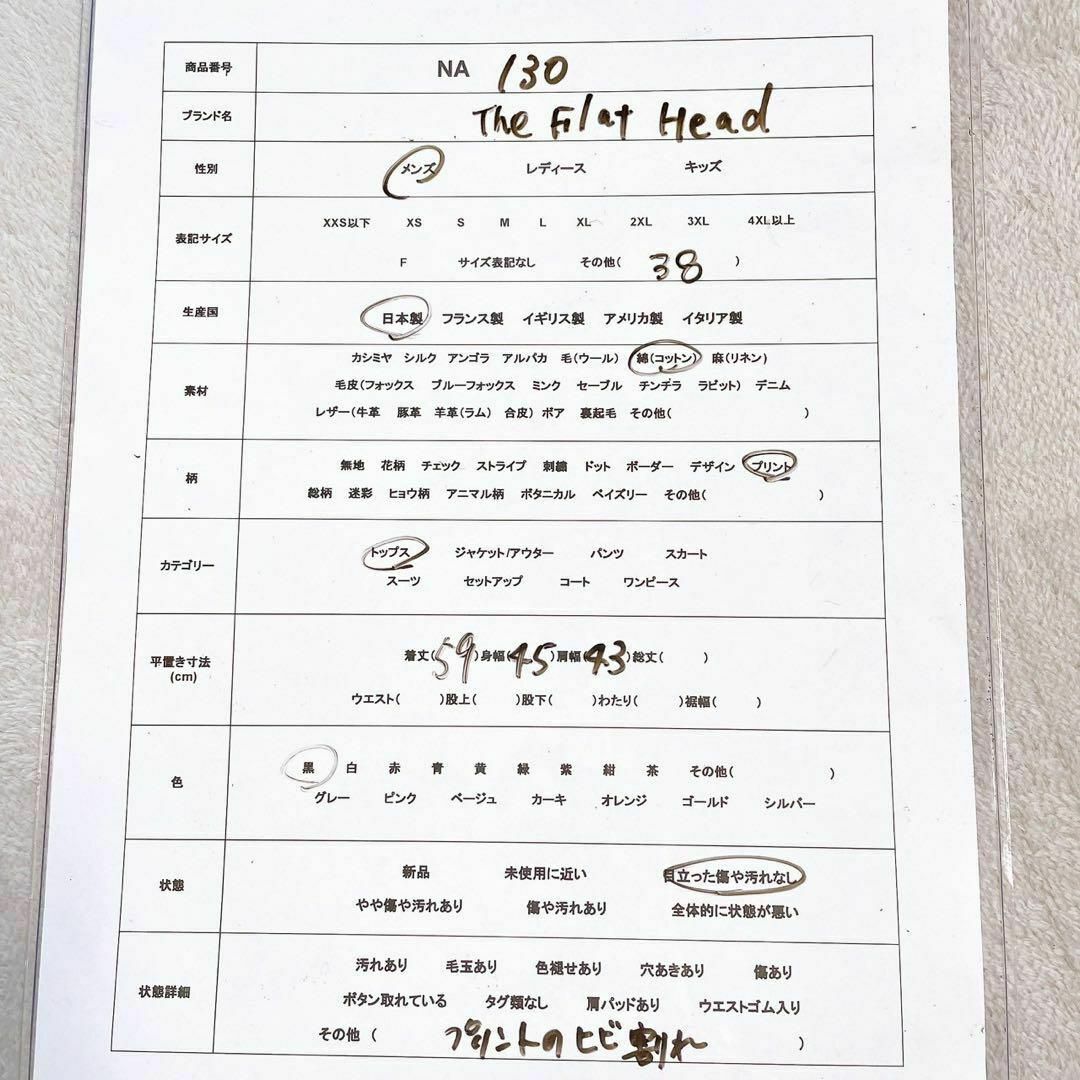 商品番号 NA 130
ブランド名 The Flat Head
性別 メンズ レディース キッズ
XXS以下 XS S M L XL 2XL 3XL 4XL以上
表記サイズ
F サイズ表記なし その他( 38 )
生産国 日本製 フランス製 イギリス製 アメリカ製 イタリア製
カシミヤ シルク アンゴラ アルパカ 毛(ウール) 綿(コットン) 麻(リネン)
素材 毛皮(フォックス ブルーフォックス ミンク セーブル チンチラ ラビット) デニム
レザー(牛革 豚革 羊革(ラム) 合皮) ボア 裏起毛 その他( )
無地 花柄 チェック ストライプ 刺繍 ドット ボーダー デザイン プリント
柄
総柄 迷彩 ヒョウ柄 アニマル柄 ボタニカル ペイズリー その他( )
トップス ジャケット/アウター パンツ スカート
カテゴリー
スーツ セットアップ コート ワンピース
着丈(59)身幅(45)肩幅(43)総丈( )
平置き寸法
(cm)
ウエスト( )股上( )股下( )わたり( )裾幅( )
黒 白 赤 青 黄 緑 紫 紺 茶 その他( )
色
グレー ピンク ベージュ カーキ オレンジ ゴールド シルバー
新品 未使用に近い 目立った傷や汚れなし
状態
やや傷や汚れあり 傷や汚れあり 全体的に状態が悪い
汚れあり 毛玉あり 色褪せあり 穴あきあり 傷あり
状態詳細 ボタン取れている タグ類なし 肩パッドあり ウエストゴム入り
その他 ( プリントのヒビ割れ )